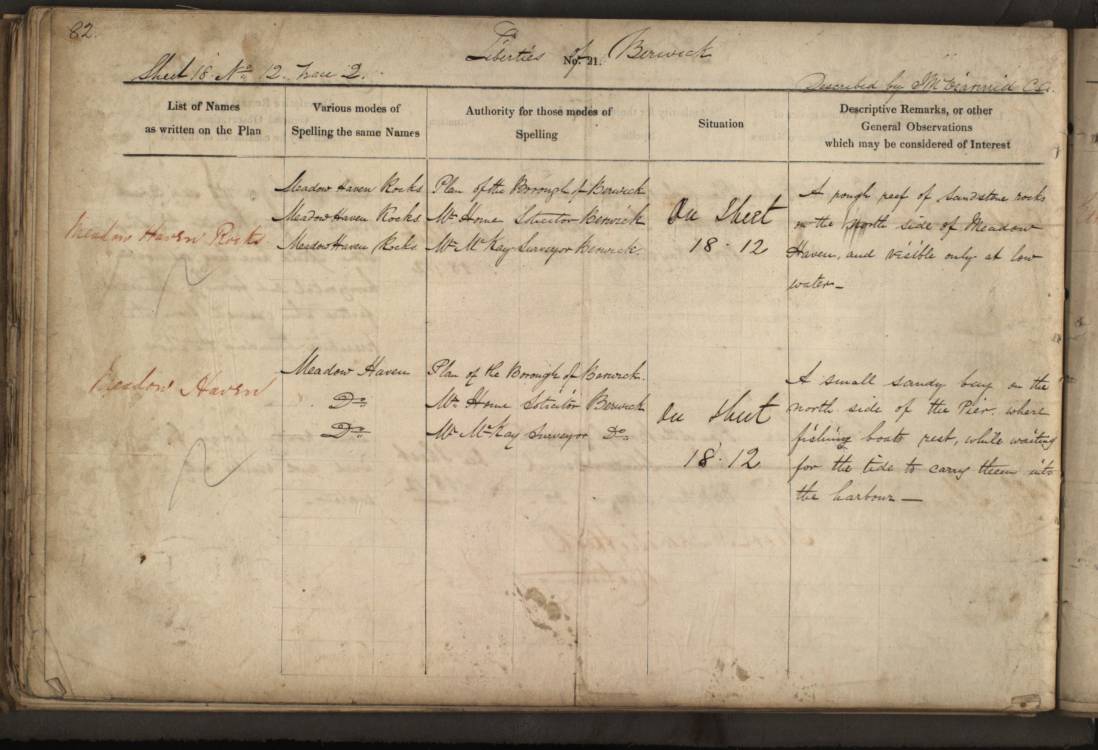 82.
Liberties of Berwick
No. 21.
Sheet 18 No 12. Trace 2.
Described by J McDiarmid C.A.
List of Names
as written on the Plan
Various modes of
Spelling the same Names
Authority for those modes of
Spelling
Situation
Descriptive Remarks, or other
General Observations
which may be considered of Interest
Meadow Haven Rocks
Meadow Haven Rocks
Meadow Haven Rocks
Meadow Haven Rocks
Plan of the Borough of Berwick
Mr. Home Solicitor Berwick
Mr. McKay Surveyor Berwick.
On Sheet
18. 12
A rough reef of sandstone rocks
on the north side of Meadow
Haven, and visible only at low
water—
Meadow Haven
Meadow Haven
Do
Do
Plan of the Borough of Berwick.
Mr. Home Solicitor Berwick
Mr. McKay Surveyor Do
On Sheet
18. 12
A small sandy bay on the
north side of the Pier, where
fishing boats rest, while waiting
for the tide to carry them into
the harbour—